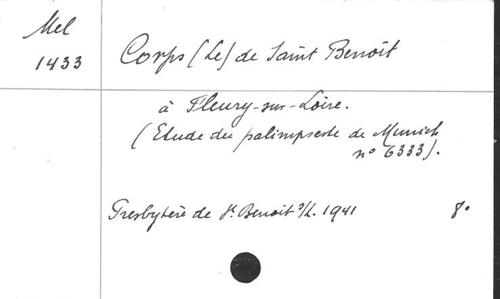 Mel
1433
Corps (Le) de Saint Benoît
à Fleury-sur-Loire.
(Etude du palimpseste de Munich
n° 6333).
Presbytère de St. Benoit s/L. 1941 8°